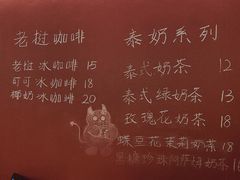 老挝咖啡
老挝冰咖啡 15
可可冰咖啡 18
椰奶冰咖啡 20
泰奶系列
泰式奶茶 12
泰式绿奶茶 13
玫瑰花奶茶 18
蝶豆花茉莉奶茶 18
黑糖珍珠阿萨姆奶茶 18